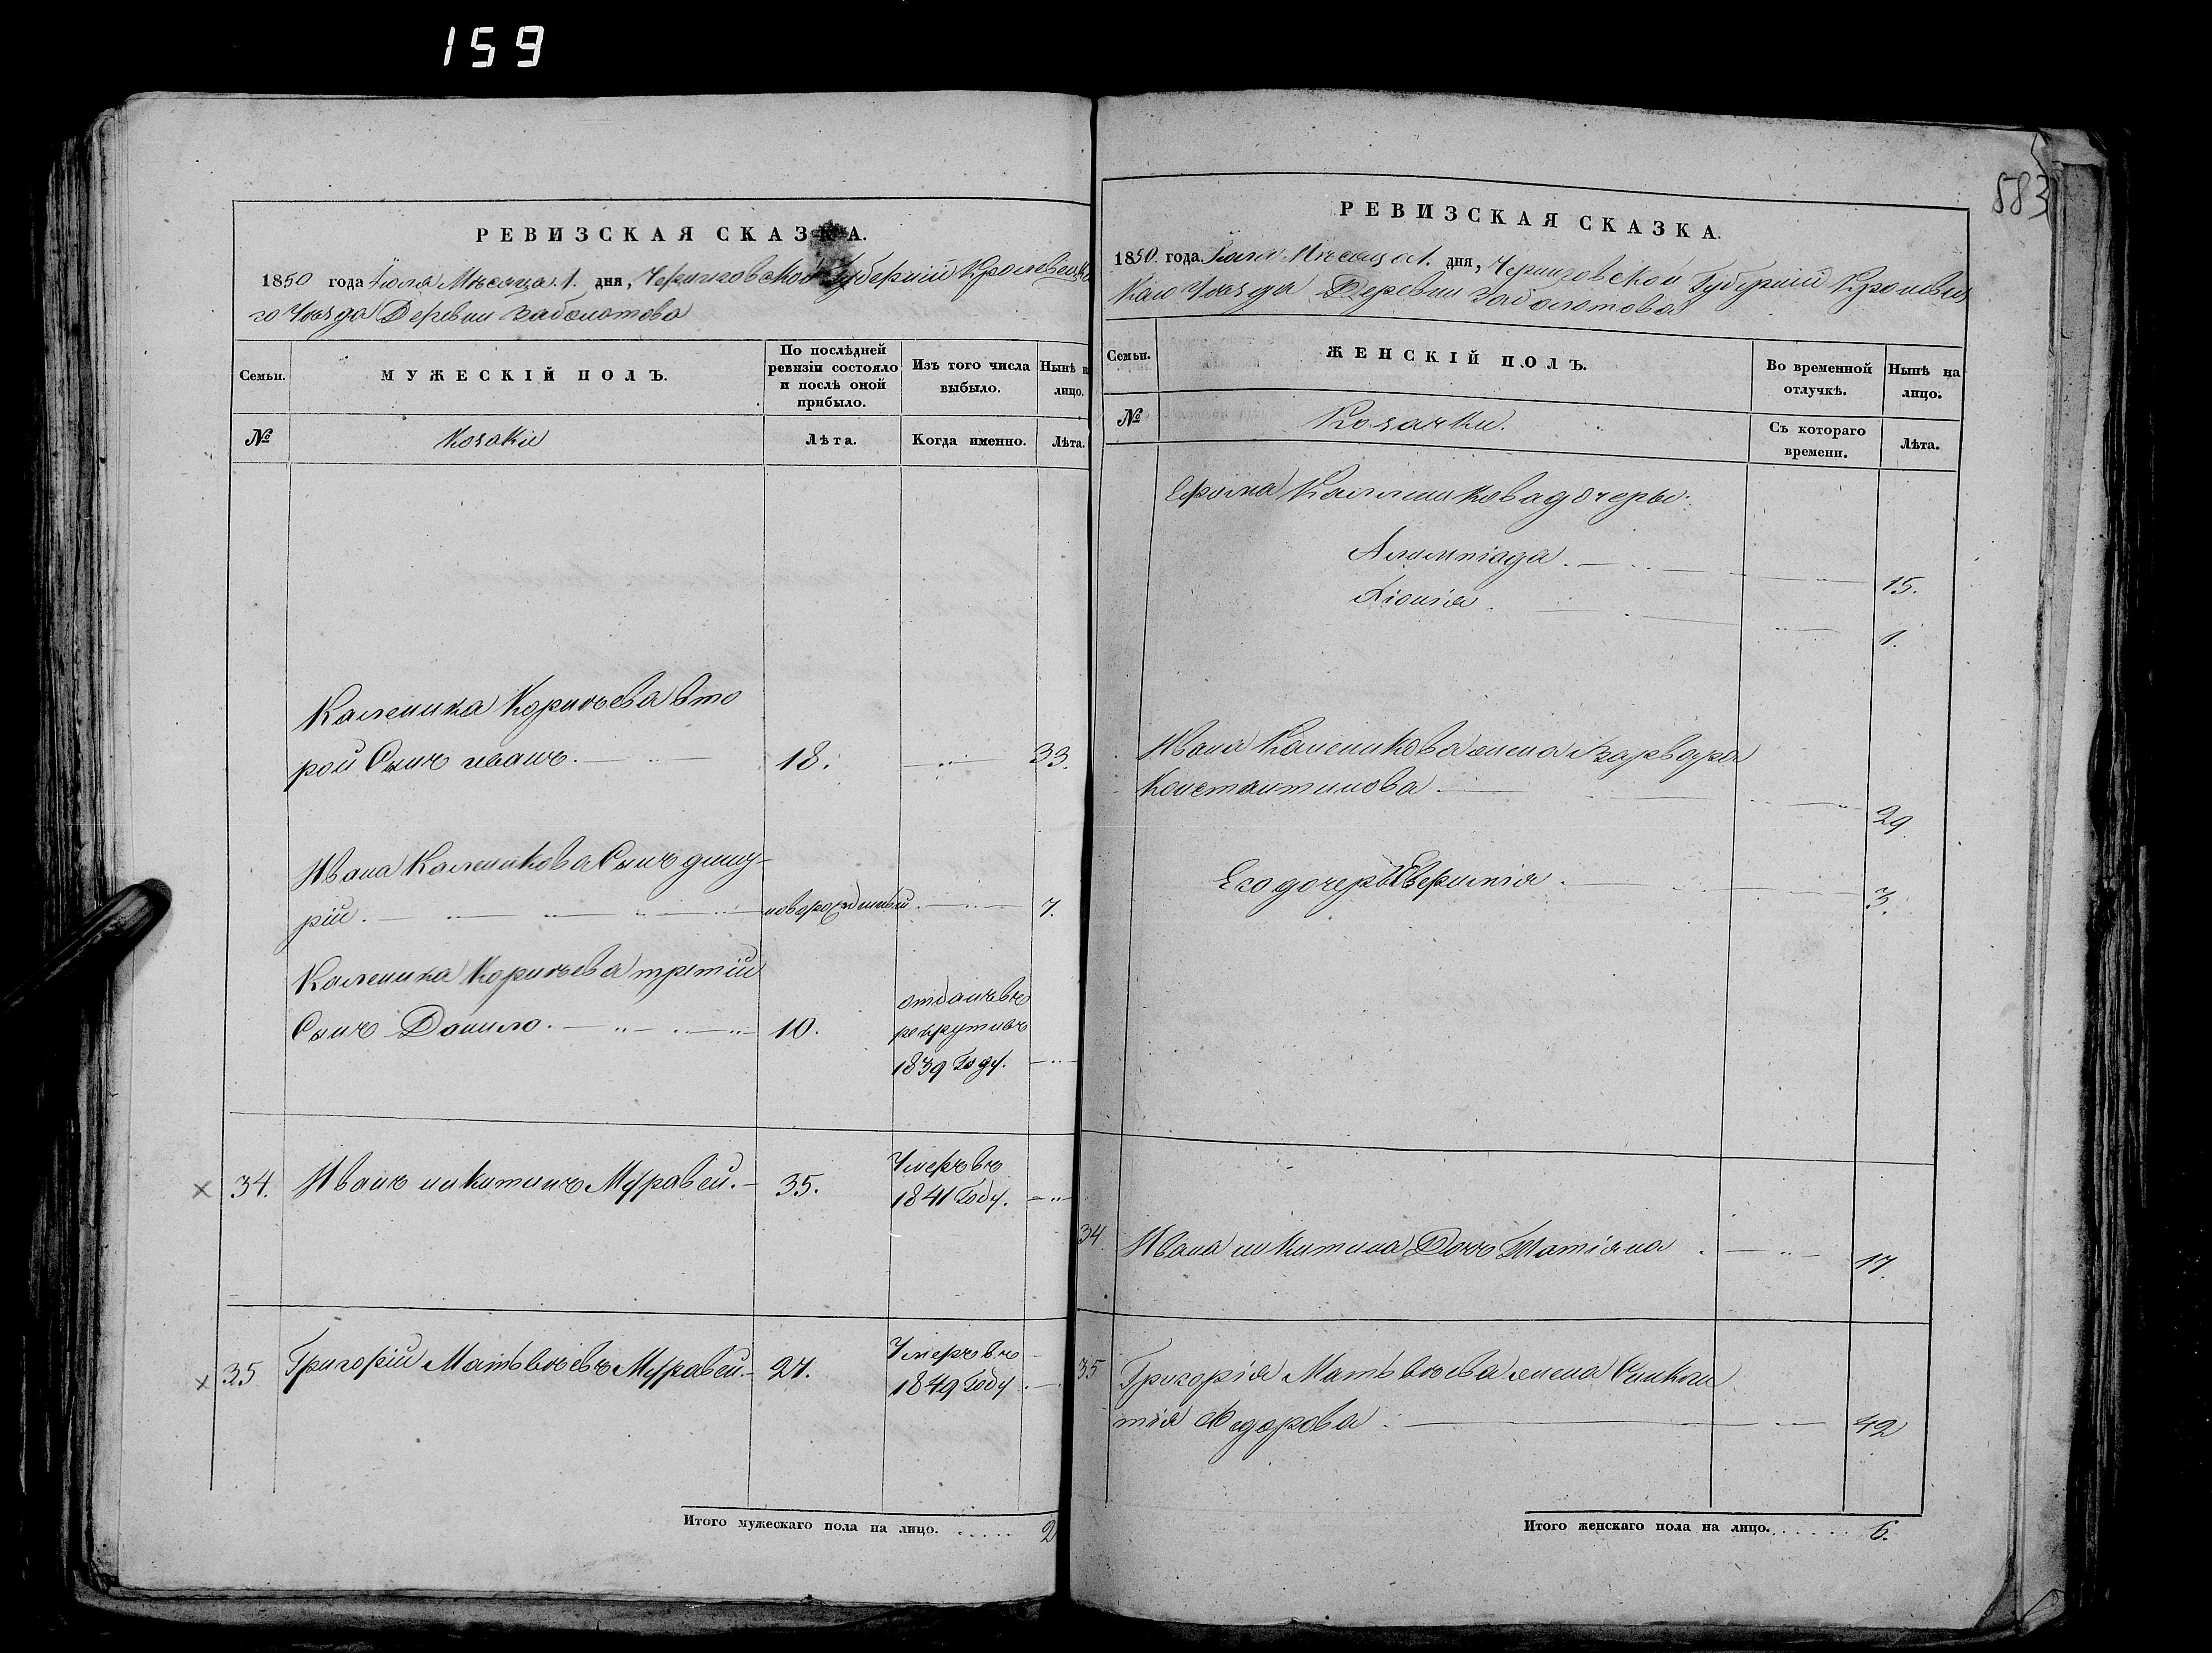 159
583
РЕВИЗСКАЯ СКАЗКА.
1850 года Июля Мѣсяца 1. дня, Черниговской Губерніи Кролевецка
го Уѣзда Деревни Заболотова
Семьи.
МУЖЕСКІЙ ПОЛЪ.
По послѣдней
ревизіи состояло
и послѣ оной
прибыло.
Изъ того числа
выбыло.
Нынѣ н
лицо.
№
Козаки
Лѣта.
Когда именно.
Лѣта.
Каленика Корнѣева вто
рой Сынъ иванъ. 18. 33.
Ивана Каленикова Сынъ
рій. новорожденный 7.
Каленика Корнѣева третій
Сынъ Данило. 10. отданъ въ
рекруты въ
1839 Году.
34. Иванъ никитинъ Муравей. 35. Умеръ въ
1841 Году.
35 Григорій Матьвѣевъ Муравей. 27. Умеръ въ
1849 Году
Итого мужескаго пола на лицо. 2
РЕВИЗСКАЯ СКАЗКА.
1850. года Июля Мѣсяца 1. дня, Черниговской Губерніи Кролевец
Каго Уѣзда Деревни Заболотова
Семьи.
ЖЕНСКІЙ ПОЛЪ.
Во временной
отлучкѣ.
Нынѣ на
лицо.
№
Козачки.
Съ котораго
времени.
Лѣта.
Каленикова дочеры:
Алимпіада. 15.
1.
Ивана Каленикова жена Варвара
Константинова 29.
Его дочеръ 3.
34. Ивана никитина Дочь Татіяна. 17.
35 Григорія Матьвѣева жена
Федорова. 42
Итого женскаго пола на лицо. 6.